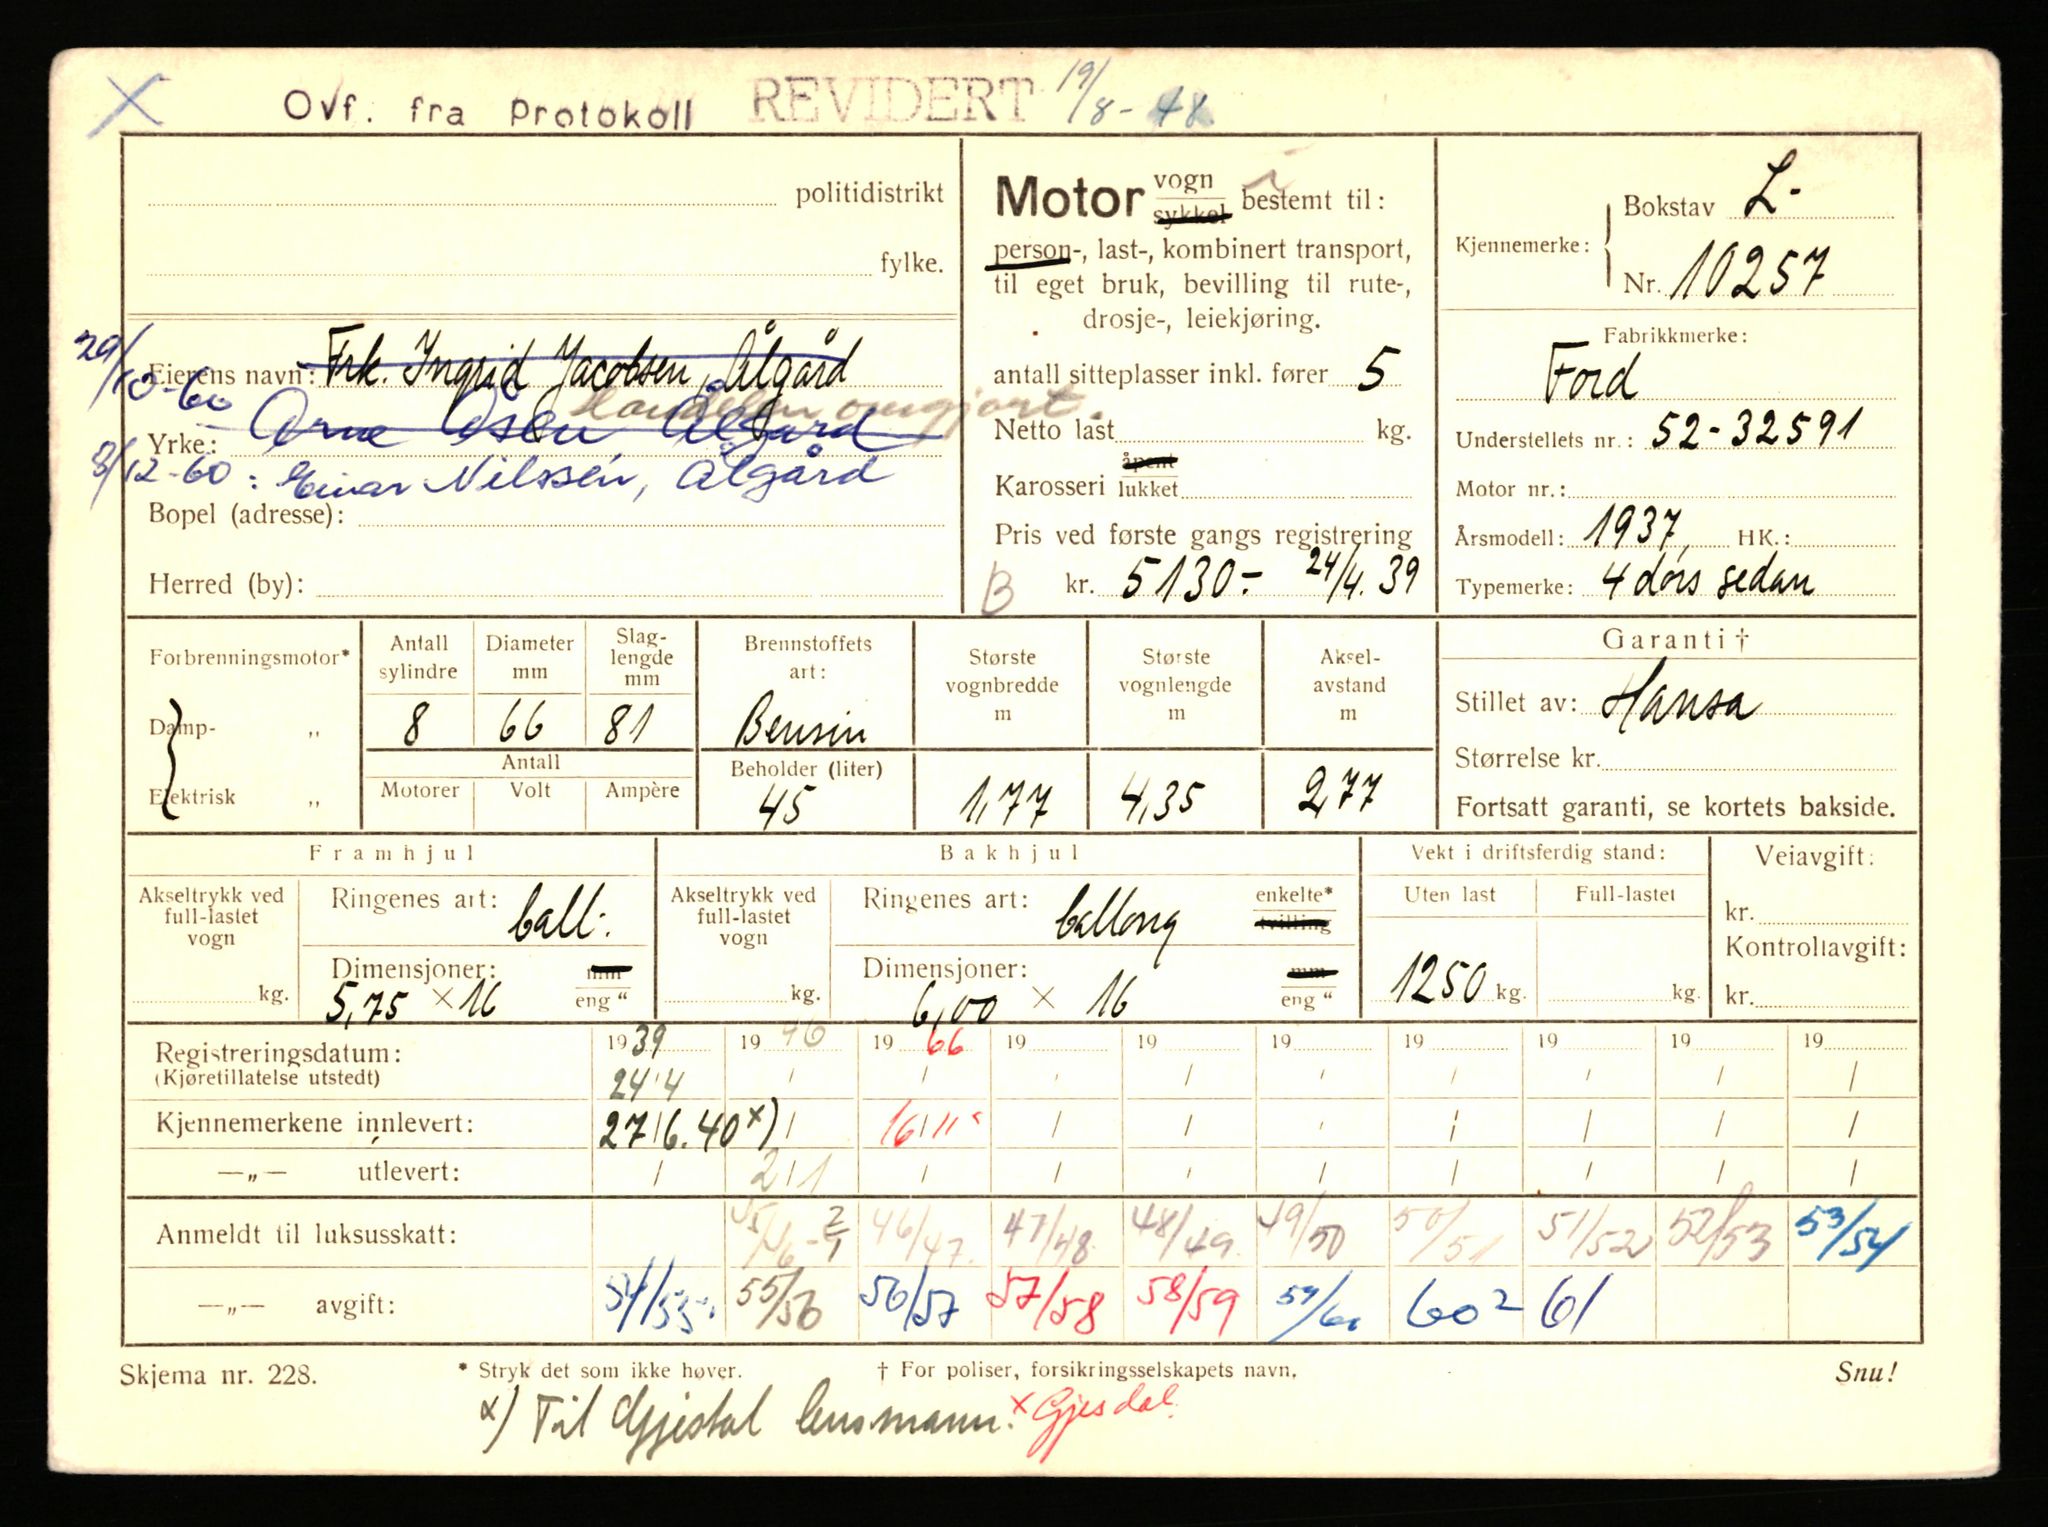 Ovf. fra Protokoll REVIDERT 19/8-48.
politidistrikt
fylke.
29/10-60
Eierens navn: Frk. Ingrid Jacobsen, Ålgård
Handelen omgjort.
Arne Åsen Ålgård
Yrke:
8/12-60: Einar Nilssen, Ålgård
Bopel (adresse):
Herred (by):
Motor vogn sykkel bestemt til:
person-, last-, kombinert transport,
til eget bruk, bevilling til rute-,
drosje-, leiekjøring.
antall sitteplasser inkl. fører 5
Netto last kg.
Karosseri åpent lukket
Pris ved første gangs registrering
B kr. 5130.- 24/4.39
Kjennemerke: Bokstav L-
Nr. 10257
Fabrikkmerke:
Ford
Understellets nr.: 52-32591
Motor nr.:
Årsmodell: 1937, HK.:
Typemerke: 4 dørs sedan
Forbrenningsmotor*
Damp- „
Elektrisk „
Antall sylindre Diameter mm Slag-lengde mm
8 66 81
Antall
Motorer Volt Ampère
Brennstoffets art:
Bensin
Beholder (liter)
45
Største vognbredde m
1,77
Største vognlengde m
4,35
Aksel-avstand m
2,77
Garanti †
Stillet av: Hansa
Størrelse kr.
Fortsatt garanti, se kortets bakside.
Framhjul
Akseltrykk ved full-lastet vogn
kg.
Ringenes art: ball.
Dimensjoner: mm
5,75 × 16 eng "
Bakhjul
Akseltrykk ved full-lastet vogn
kg.
Ringenes art: ballong enkelte* tvilling
Dimensjoner: mm
6,00 × 16 eng "
Vekt i driftsferdig stand:
Uten last Full-lastet
1250 kg. kg.
Veiavgift:
kr.
Kontrollavgift:
kr.
Registreringsdatum: 1939 1946 1966 19 19 19 19 19 19 19
(Kjøretillatelse utstedt) 24/4
Kjennemerkene innlevert: 27/6.40 x) 16/11
—„— utlevert: 2/1
Anmeldt til luksusskatt: 45/46-2/1 46/47. 47/48 48/49. 49/50 50/51 51/52 52/53 53/54
—„— avgift: 54/55 55/56 56/57 57/58 58/59 59/60 60² 61
Skjema nr. 228. * Stryk det som ikke høver. † For poliser, forsikringsselskapets navn. Snu!
x) Til Gjestal lensmann. x Gjesdal.